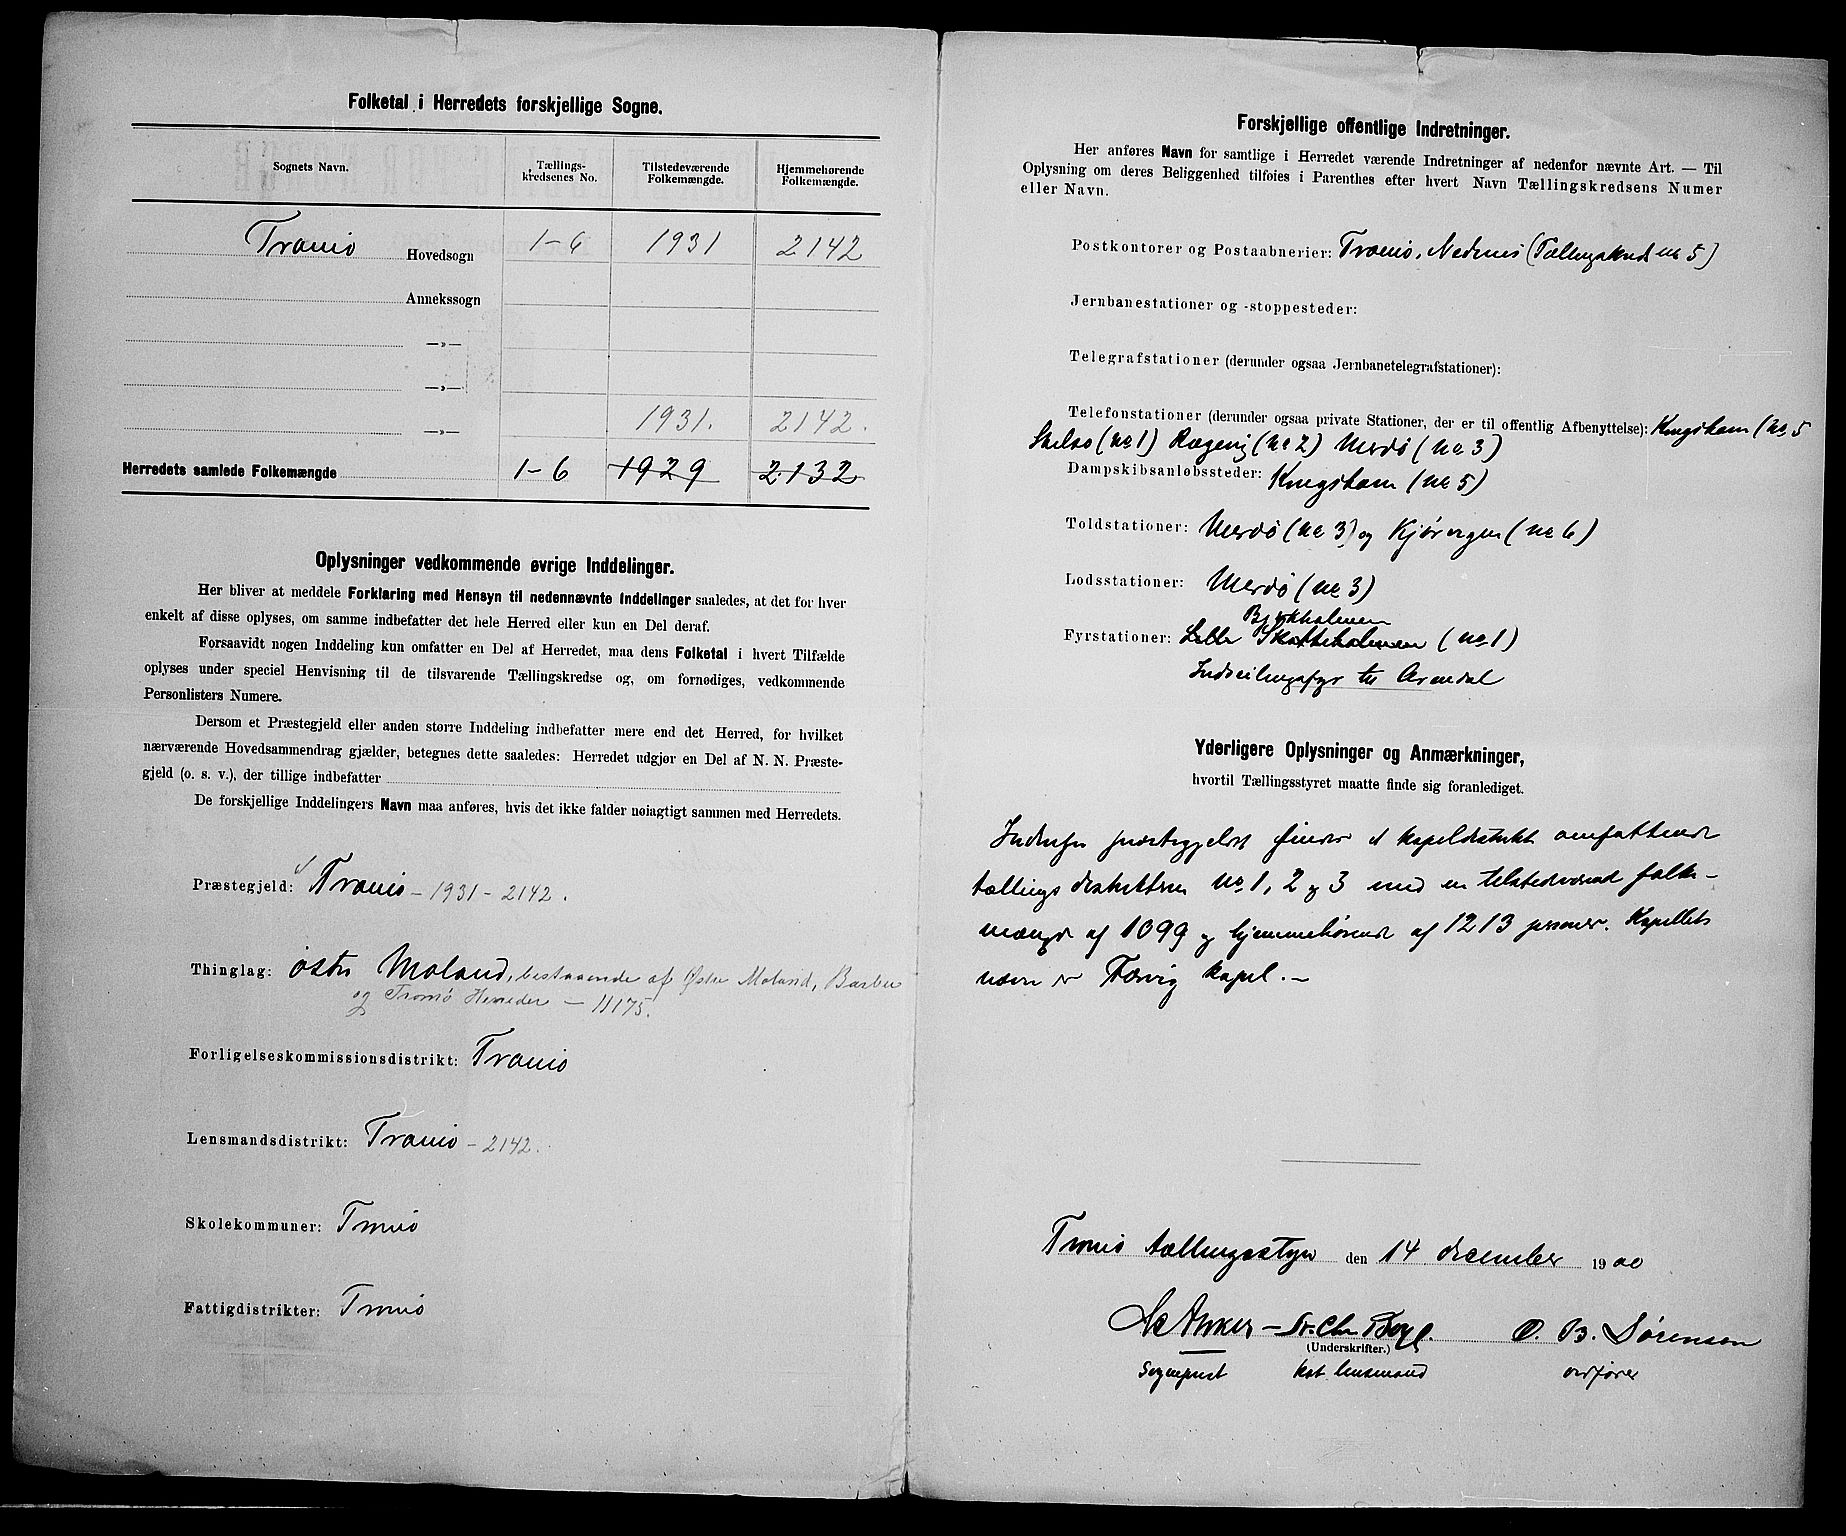 Folketal i Herredets forskjellige Sogne.
Sognets Navn. Tællings-kredsenes No. Tilstedeværende Folkemængde. Hjemmehørende Folkemængde.
Tromö Hovedsogn 1-6 1931 2142
Annekssogn
—»—
—»—
—»— 1931. 2142.
Herredets samlede Folkemængde 1-6 1929 2132
Oplysninger vedkommende øvrige Inddelinger.
Her bliver at meddele Forklaring med Hensyn til nedennævnte Inddelinger saaledes, at det for hver
enkelt af disse oplyses, om samme indbefatter det hele Herred eller kun en Del deraf.
Forsaavidt nogen Inddeling kun omfatter en Del af Herredet, maa dens Folketal i hvert Tilfælde
oplyses under speciel Henvisning til de tilsvarende Tællingskredse og, om fornødiges, vedkommende
Personlisters Numere.
Dersom et Præstegjeld eller anden større Inddeling indbefatter mere end det Herred, for hvilket
nærværende Hovedsammendrag gjælder, betegnes dette saaledes: Herredet udgjør en Del af N. N. Præste-
gjeld (o. s. v.), der tillige indbefatter
De forskjellige Inddelingers Navn maa anføres, hvis det ikke falder nøiagtigt sammen med Herredets.
Præstegjeld: Tromö - 1931 - 2142.
Thinglag: östre Moland, bestaaende af Østre Moland, Barbu
og Tromö Herreder - 11175.
Forligelseskommissionsdistrikt: Tromö
Lensmandsdistrikt: Tromö - 2142.
Skolekommuner: Tromö
Fattigdistrikter: Tromö
Forskjellige offentlige Indretninger.
Her anføres Navn for samtlige i Herredet værende Indretninger af nedenfor nævnte Art. — Til
Oplysning om deres Beliggenhed tilføies i Parenthes efter hvert Navn Tællingskredsens Numer
eller Navn.
Postkontorer og Postaabnerier: Tromö, Nedenes (Tællingskreds No 5)
Jernbanestationer og -stoppesteder:
Telegrafstationer (derunder ogsaa Jernbanetelegrafstationer):
Telefonstationer (derunder ogsaa private Stationer, der er til offentlig Afbenyttelse): Kongshavn (No 5
Skilsø (No 1) Rægevig (No 2) Merdö (No 3)
Dampskibsanløbssteder: Kongshavn (No 5)
Toldstationer: Merdö (No 3) og Kjörvigen (No 6)
Lodsstationer: Merdö (No 3)
Bjørkholmen
Fyrstationer: Lille Skotteholmen (No 1)
Indseilingsfyr til Arendal
Yderligere Oplysninger og Anmærkninger,
hvortil Tællingsstyret maatte finde sig foranlediget.
Indenfor præstegjeldet findes et kapeldistrikt omfattende
tællingsdistrikterne No 1, 2 og 3 med en tilstedeværende folke-
mængde af 1099 og hjemmehörende af 1213 personer. Kapellets
navn er Færvig kapel. -
Tromö tællingsstyre den 14 december 1900
Anker - Chr. O. B. Sörensen
(Underskrifter.)
Sogneprest kst. lensmand ordförer